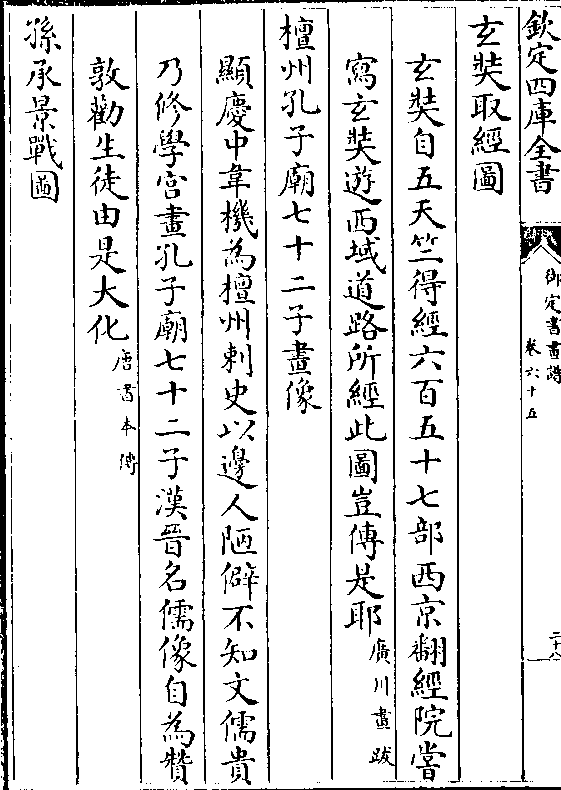 欽定四庫全書
御定書畫譜
卷六十五
二十八
玄奘取經圖
玄奘自五天竺得經六百五十七部西京翻經院嘗
寫玄奘遊西域道路所經此圖豈傳是耶廣川畫跋
檀州孔子廟七十二子畫像
顯慶中韋機為檀州刺史以邊人陋僻不知文儒貴
乃修學宮畫孔子廟七十二子漢晉名儒像自為贊
敦勸生徒由是大化唐書本傳
孫承景戰圖